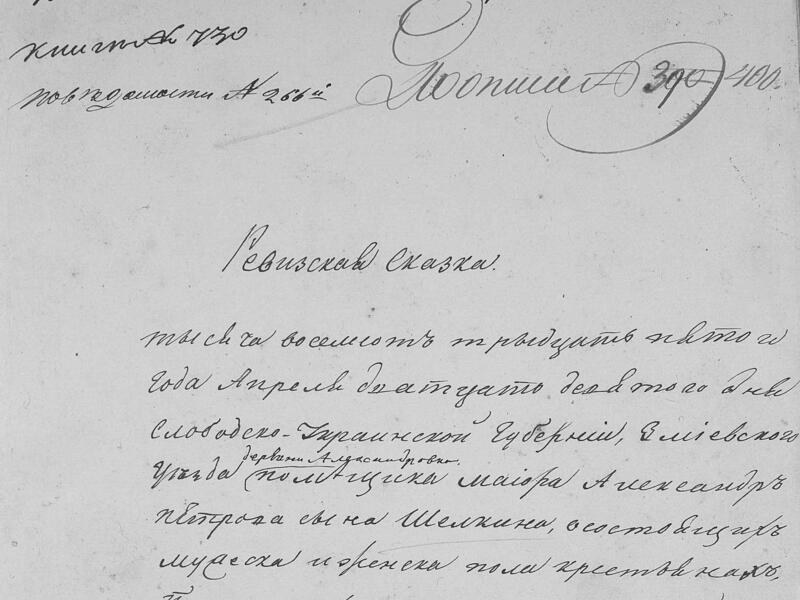 книги № 730
по вѣдомости № 266й
Копия № 390-400.
Ревизская Сказка.
тысяча восемсотъ тридцать пятого
года Апреля дватцать девятого дня
Слободско-Украинской Губерніи, Зміевского
уезда дервни Александровки. помѣщика маіора Александръ
Петрова сына Шелкина, о состоящихъ
мужеска и женска пола крестьянахъ,